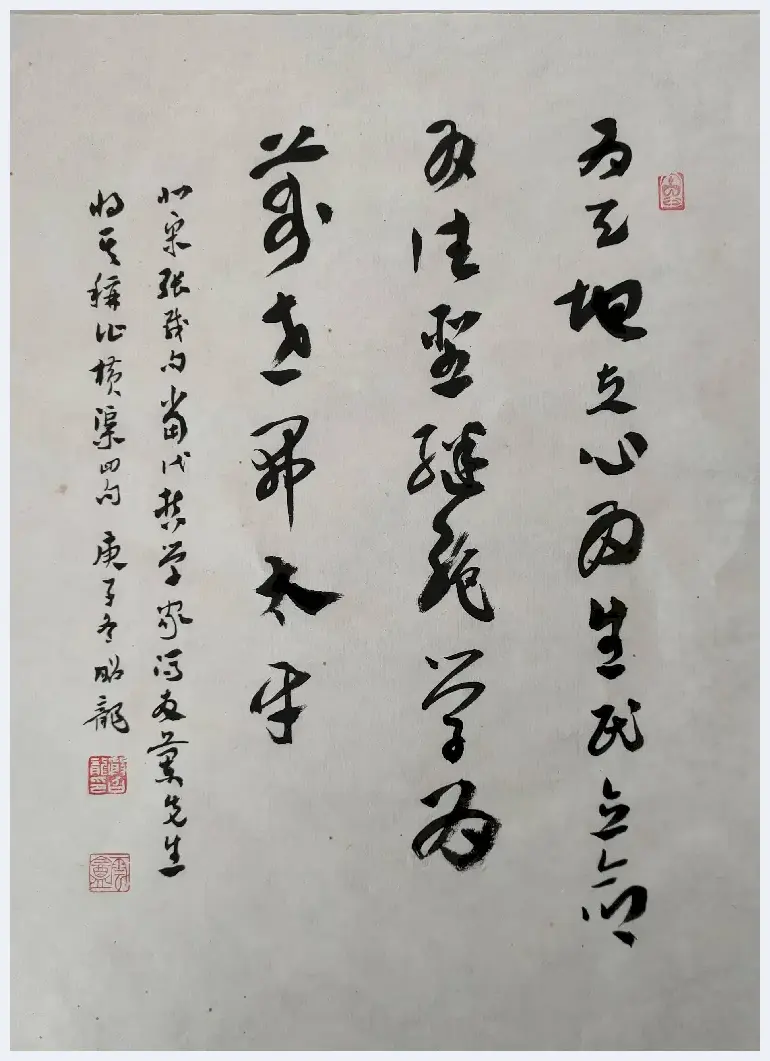 为天地立心为生民立命
为往圣继绝学为
万世开太平
北宋张载句当代哲学家冯友兰先生
将其称作横渠四句庚子冬昭龙